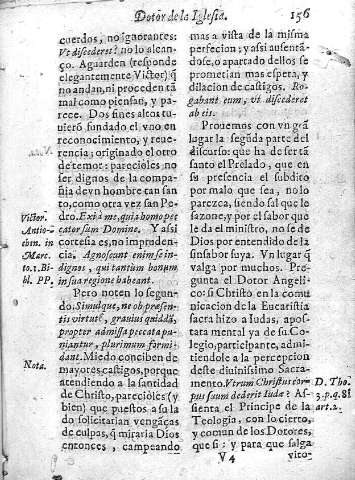 Dotor de la Iglesia.
156
cuerdos, no ignorantes:
Vt discederet: no lo alcan-
ço. Aguarden (responde
elegantemente Victor) q̃
no andan, ni proceden tã
mal como piensan, y pa-
rece. Dos fines altos tu-
uierõ fundado el vno en
reconocimiento, y reue-
rencia; originado el otro
de temor: pareciòles no
ser dignos de la compa-
ñia de vn hombre tan san-
to, como otra vez san Pe-
dro. Exi à me, quia homo pec
cator sum Domine. Y assi
cortesia es, no impruden-
cia. Agnoscant enim se in-
dignos, qui tantum bonum
in sua regione habeant.
Victor.
Antio-
chen. in
Marc.
to. 1. Bi-
bl. PP.
Pero noten lo segun-
do. Simulque, ne ob præsen-
tis virtutẽ, grauius quiddã,
propter admissa peccata pu-
niantur, plurimum formi-
dant. Miedo conciben de
mayores castigos, porque
atendiendo a la santidad
de Christo, pareciòles (y
bien) que puestos a su la
do solicitarian vengãças
de culpas, q̃ miraria Dios
entonces, campeando
Nota.
mas a vista de la misma
perfecion; y assi ausentã-
dose, o apartado dellos se
prometian mas espera, y
dilacion de castigos. Ro-
gabant eum, vt discederet
ab eis.
Prouemos con vn grã
lugar la segũda parte del
discurso: que ha de ser tã
santo el Prelado, que en
su presencia el subdito
por malo que sea, no lo
parezca, siendo sal que lo
sazone, y por el sabor que
le da el ministro, no se de
Dios por entendido de la
insabor suya. Vn lugar q̃
valga por muchos. Pre-
gunta el Dotor Angeli-
co: si Christo en la comu
nicacion de la Eucaristia
sacra hizo a Iudas, apos-
tata mental ya de su Co-
legio, participante, admi-
tiendole a la percepcion
deste diuinissimo Sacra-
mento. Vtrum Christus cor-
pus suum dederit Iudæ? As-
sienta el Principe de la
Teologia, con lo cierto,
y comun de los Dotores,
que si: y para que salga
D. Tho.
3. p. q. 81
art. 2.
V 4
vito-